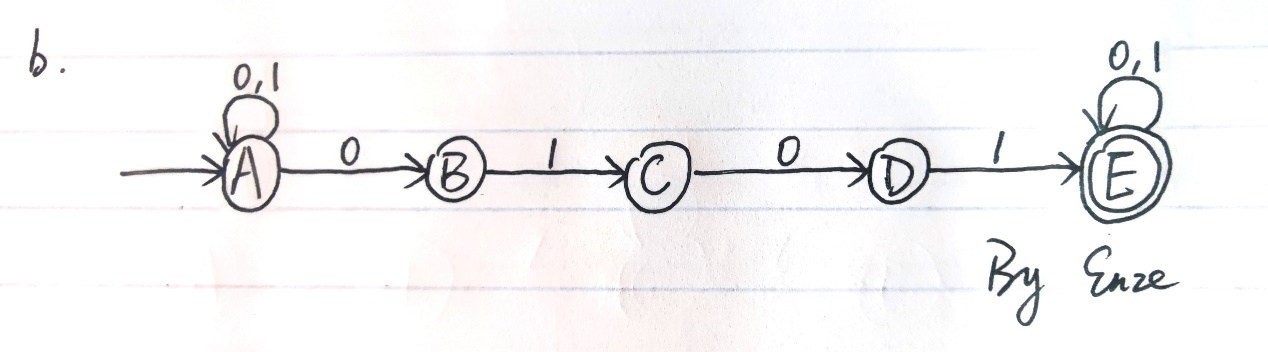 b.
0,1 0,1
A 0 B 1 C 0 D 1 E
By Enze